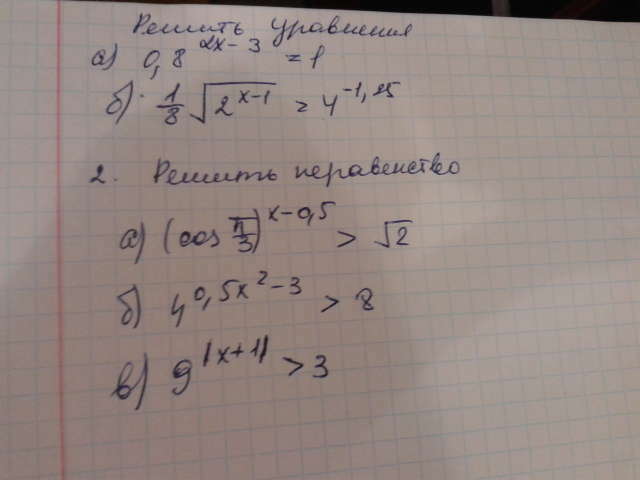 Решить уравнения
а) 0,8^{2x-3} = 1
б) \frac{1}{8} \sqrt{2^{x-1}} = 4^{-1,25}
2. Решить неравенство
а) (cos \frac{π}{3})^{x-0,5} > \sqrt{2}
б) 4^{0,5x^2-3} > 8
в) 9^{|x+1|} > 3